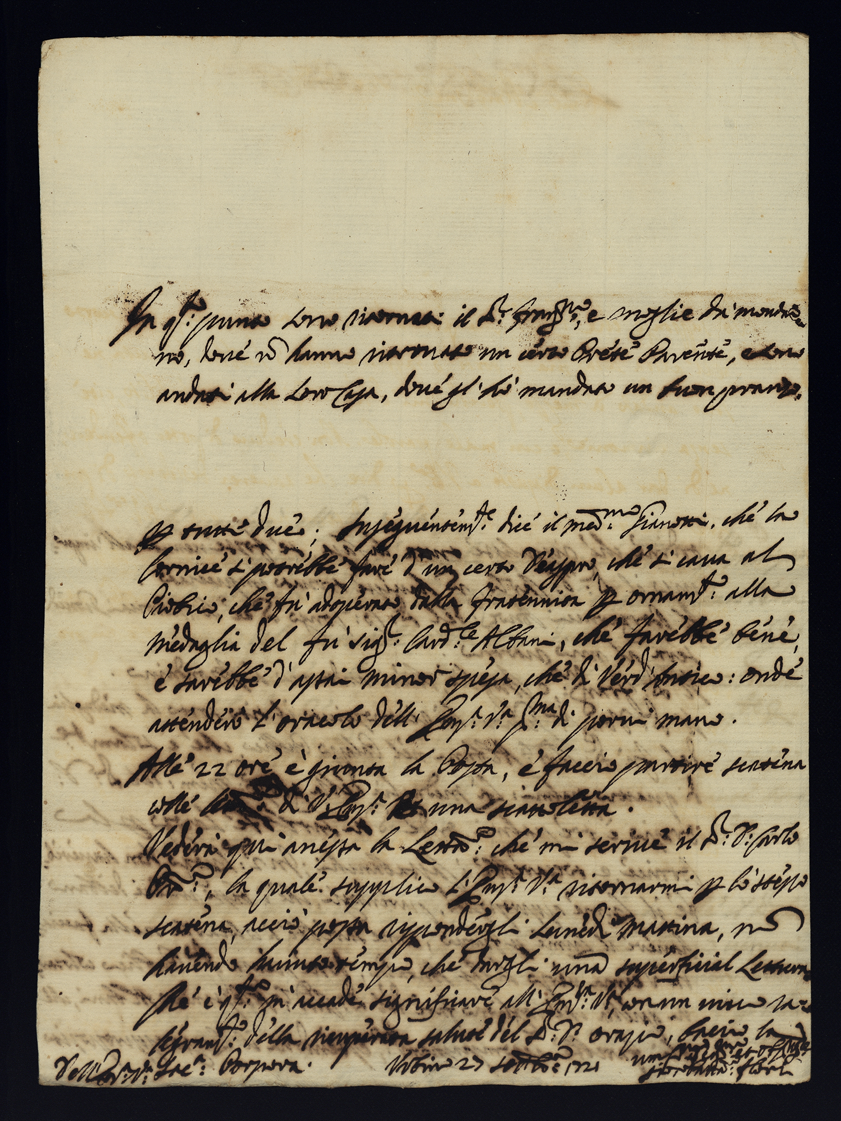 In q.to punto sono ritornati il S.r e moglie da monda=
no, dove nõ hanno ritrovato un certo Prete Parente, e sono
andati alla loro Casa, dove gl'hò mandato un buon pranzo,
p tutti due; Susseguentem.te dice il med.mo Gianotti, che la
Cornice si potrebbe fare d'un certo Diaspro, che si cava al
che fù adoperato dalla fraternita p ornam.to alla
medaglia del fù Sig.r Card.le Albani, che farebbe bene,
e sarebbe d'assai minor spesa, che di Verd'antico: onde
attenderò l'oracolo dell' V.ra di porvi mano.
Alle 22 ore è gionta la Posta, e faccio partire
colle di V. una scatoletta.
Vederà qui anessa la Lettera che mi scrive il S.r D. Carlo
la quale supplico V.ra ritornarmi p lo stesso
acciò possa rispondergli Lunedì mattina, nõ
havendo havuto tempo, che dargli una superficial Lettura
che è q.to m'accade significare all' V.ra, con un mio ra=
legram.to della ricuperata salute del S.r D. Orazio, bacio la
Dell' V.ra Sac.a Porpora. Urbino 27 1721